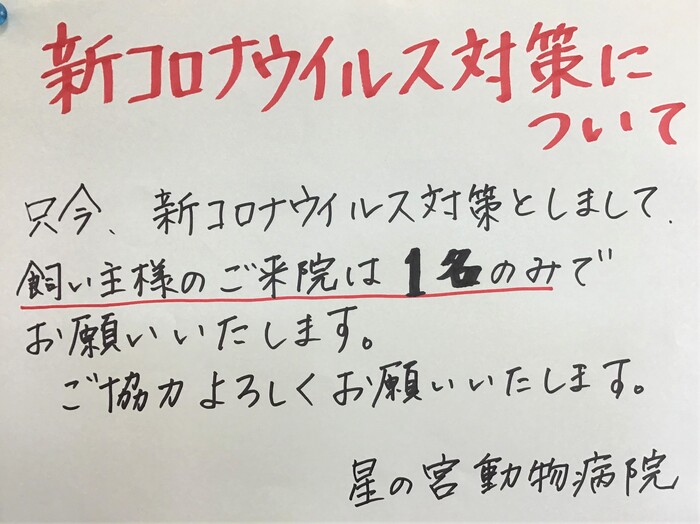 新コロナウイルス対策に
ついて
只今、新コロナウイルス対策としまして、
飼い主様のご来院は1名のみで
お願いいたします。
ご協力よろしくお願いいたします。
星の宮動物病院